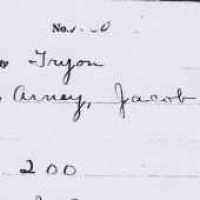 No.
Tryon
Arney, Jacob
200